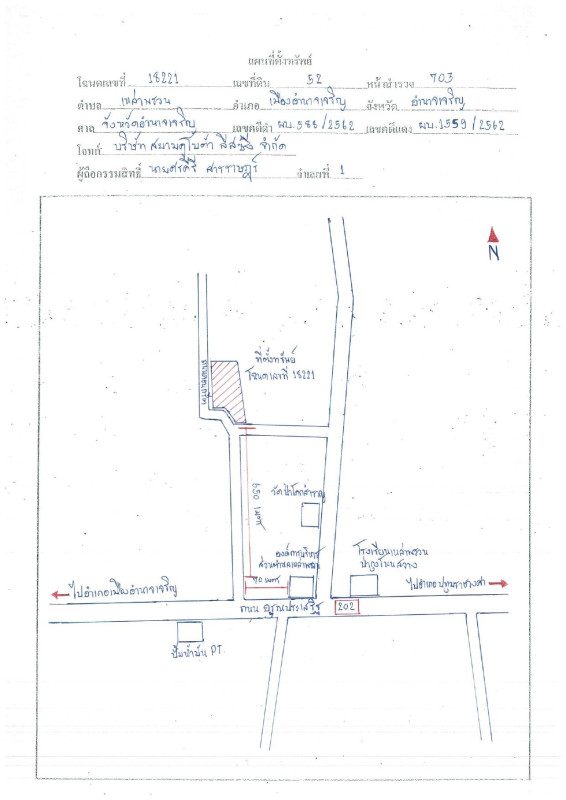 แผนที่ตั้งทรัพย์
โฉนดเลขที่ 18221 เลขที่ดิน 52 หน้าสำรวจ 703
ตำบล เหล่าพรวน อำเภอ เมืองอำนาจเจริญ จังหวัด อำนาจเจริญ
ศาล จังหวัดอำนาจเจริญ เลขคดีดำ ผบ.586/2562 เลขคดีแดง ผบ.1559/2562
โจทก์ บริษัท สยามคูโบต้า ลีสซิ่ง จำกัด
ผู้ถือกรรมสิทธิ์ นายศรีคีรี สารราษฎร์ จำเลยที่ 1
N
ที่ตั้งทรัพย์
โฉนดเลขที่ 18221
650 เมตร
องค์การบริหาร
90 เมตร
โรงเรียนเหล่าพรวน
ไปอำเภอเมืองอำนาจเจริญ
ไปอำเภอปทุมราชวงศา
ถนน อรุณประเสริฐ 202
ปั๊มน้ำมัน PT.